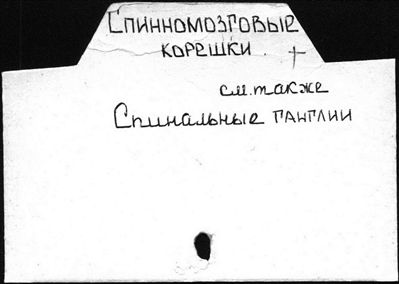 Спинномозговые
корешки
см. также
Спинальные ганглии